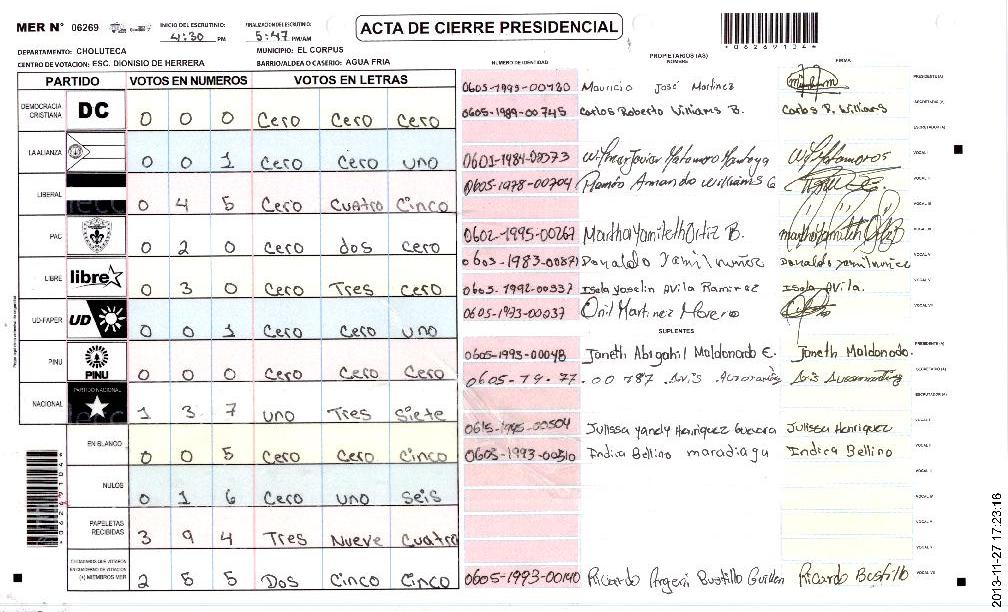 MER N° 06269
INICIO DEL ESCRUTINIO: 4:30 PM
FINALIZACION DEL ESCRUTINIO: 5:47 PM/AM
ACTA DE CIERRE PRESIDENCIAL
DEPARTAMENTO: CHOLUTECA
MUNICIPIO: EL CORPUS
CENTRO DE VOTACION: ESC. DIONISIO DE HERRERA
BARRIO/ALDEA O CASERIO: AGUA FRIA
PARTIDO VOTOS EN NUMEROS VOTOS EN LETRAS
DEMOCRACIA CRISTIANA DC 0 0 0 Cero Cero Cero
LA ALIANZA 0 0 1 Cero Cero uno
LIBERAL 0 4 5 Cero Cuatro Cinco
PAC 0 2 0 Cero dos Cero
LIBRE libre 0 3 0 Cero Tres Cero
UD-FAPER UD 0 0 1 Cero Cero uno
PINU PINU 0 0 0 Cero Cero Cero
NACIONAL PARTIDO NACIONAL 1 3 7 uno Tres Siete
EN BLANCO 0 0 5 Cero Cero Cinco
NULOS 0 1 6 Cero uno Seis
PAPELETAS RECIBIDAS 3 9 4 Tres Nueve Cuatro
CIUDADANOS QUE VOTARON EN CUADERNO DE VOTACION (+) MIEMBROS MER 2 5 5 Dos Cinco Cinco
NUMERO DE IDENTIDAD PROPIETARIOS (AS) NOMBRE FIRMA
Mauricio José Martinez PRESIDENTE(A)
0605-1989-00745 Carlos Roberto Williams B. Carlos R. Williams SECRETARIO (A)
ESCRUTADOR (A)
0601-1984-00073 VOCAL I
0605-1978-00704 Ramón Armando Williams G VOCAL II
VOCAL III
0602-1995-00262 Martha Yamileth Ortiz B. VOCAL IV
0603-1983-00871 Donaldo Yamil nuñez Donaldo Yamil nuñez VOCAL V
0605-1992-00337 Isela Yoselin Avila Ramirez Isela Avila. VOCAL VI
0605-1993-00037 Onil Martinez Moreno VOCAL VII
SUPLENTES
0605-1993-00048 Janeth Abigahil Maldonado E. Janeth Maldonado. PRESIDENTE (A)
SECRETARIO (A)
ESCRUTADOR (A)
Julissa Yandy Henriquez Guevara Julissa Henriquez VOCAL I
0605-1993-00510 Indira Bellino maradiaga Indira Bellino VOCAL II
VOCAL III
VOCAL IV
VOCAL V
VOCAL VI
0605-1993-00140 Ricardo Argeni Bustillo Guillen Ricardo Bustillo VOCAL VII
062691044
2013-11-27 17:23:16